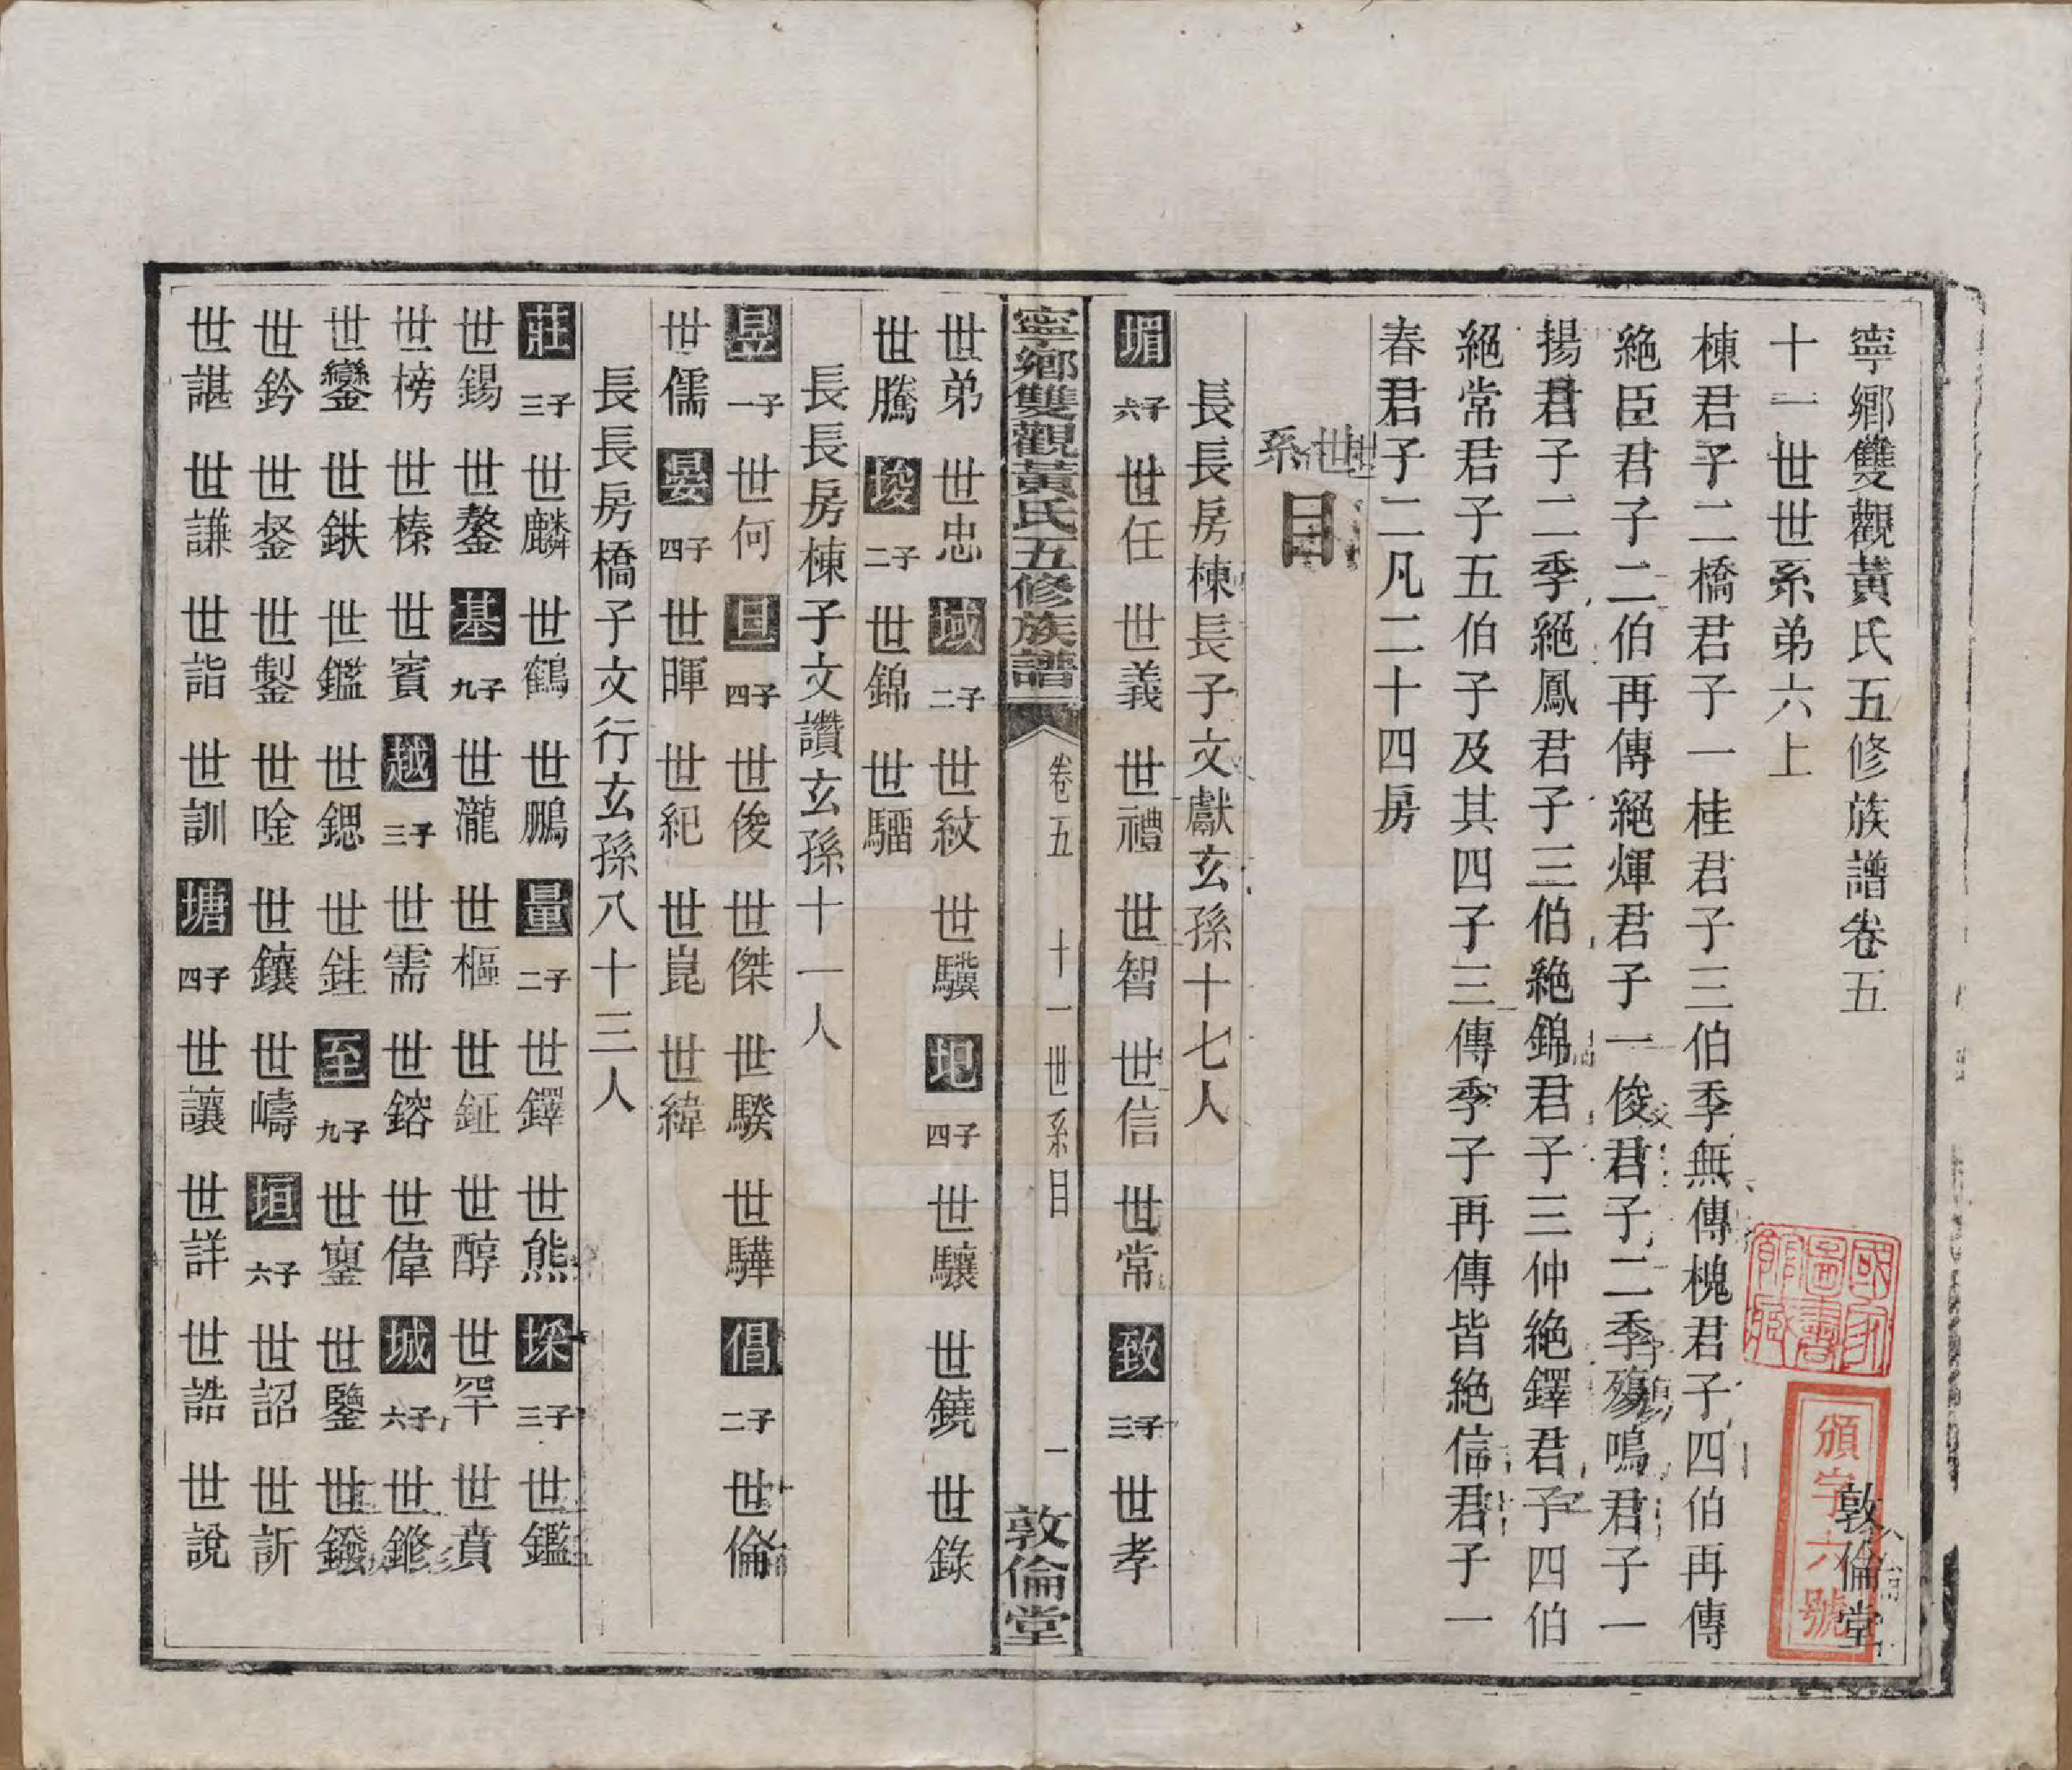 寧鄉雙觀黃氏五修族譜卷五 敦倫堂
十一世世系弟六上
棟君子二橋君子一桂君子三伯季無傳槐君子四伯再傳
絶臣君子二伯再傳絕煇君子一俊君子二季殤鳴君子一
揚君子二季絕鳳君子三伯絶錦君子三仲絶鐸君子四伯
絕常君子五伯子及其四子三傳季子再傳皆絶信君子一
春君子二凡二十四房
世系目
長長房棟長子文獻玄孫十七人
堳 六子 世任 世義 世禮 世智 世信 世常 致 三子 世孝
寧鄉雙觀黃氏五修族譜 卷五 十一世系目 一 敦倫堂
世弟 世忠 域 二子 世紋 世驥 圯 四子 世驤 世鐃 世錄
世騰 埈 二子 世錦 世騮
長長房棟子文讚玄孫十一人
昱 一子 世何 旦 四子 世俊 世傑 世騤 世驊 倡 二子 世倫
世儒 晏 四子 世暉 世紀 世崑 世緯
長長房橋子文行玄孫八十三人
莊 三子 世麟 世鶴 世鵬 量 二子 世鐸 世熊 埰 三子 世鑑
世錫 世鏊 基 九子 世瀧 世樞 世鉦 世醇 世罕 世賁
世榜 世榛 世賓 越 三子 世需 世鎔 世偉 城 六子 世鎀
世鑾 世鉷 世鑑 世鍶 世銈 至 九子 世鑋 世鑒 世鏺
世鈐 世銎 世鏨 世唫 世鑲 世嶹 垣 六子 世詔 世訢
世諶 世謙 世詣 世訓 塘 四子 世讓 世詳 世誥 世說
國家圖書館藏
頒字六號